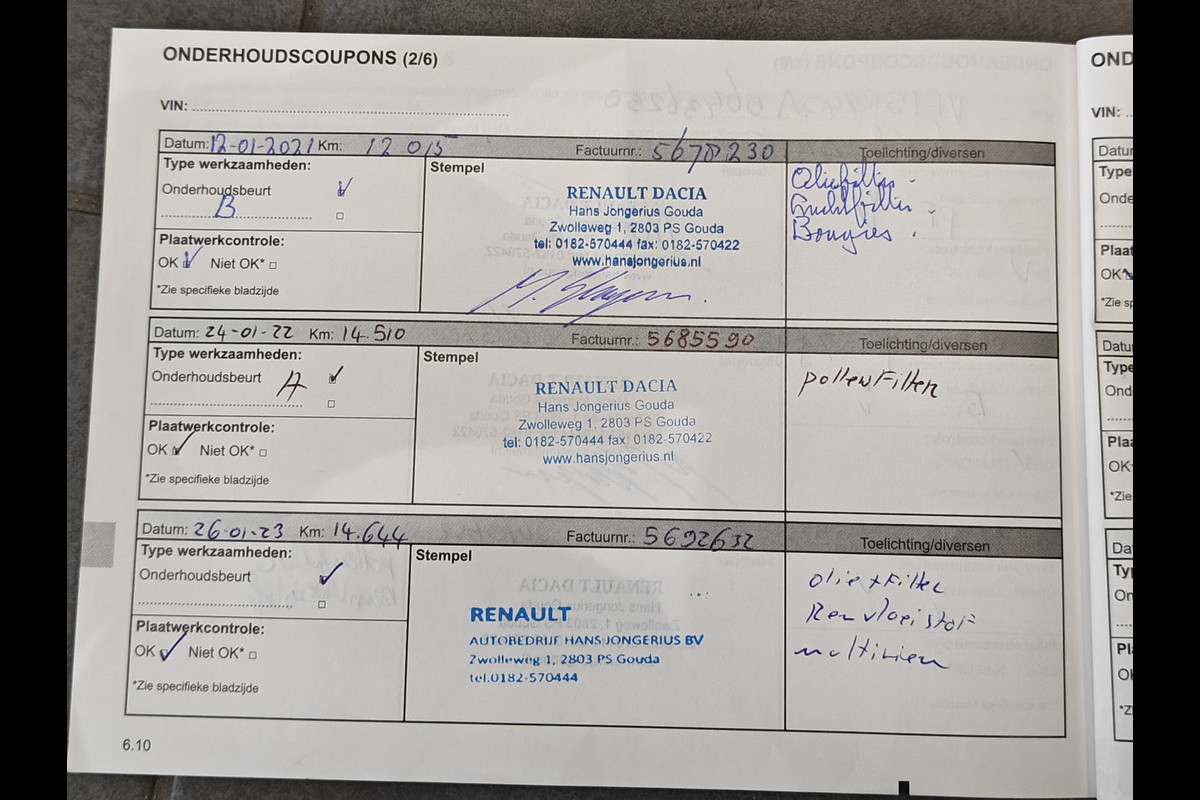 ONDERHOUDSCOUPONS (2/6)
VIN:
Datum: 12-01-2021 Km: 12 015 Factuurnr.: 5678230 Toelichting/diversen
Type werkzaamheden:
Onderhoudsbeurt
B
Plaatwerkcontrole:
OK Niet OK*
*Zie specifieke bladzijde
Stempel
RENAULT DACIA
Hans Jongerius Gouda
Zwolleweg 1, 2803 PS Gouda
tel: 0182-570444 fax: 0182-570422
www.hansjongerius.nl
Oliefilter -
Luchtfilter -
Bougies .
Datum: 24-01-22 Km: 14.510 Factuurnr.: 5685590 Toelichting/diversen
Type werkzaamheden:
Onderhoudsbeurt A
Plaatwerkcontrole:
OK Niet OK*
*Zie specifieke bladzijde
Stempel
RENAULT DACIA
Hans Jongerius Gouda
Zwolleweg 1, 2803 PS Gouda
tel: 0182-570444 fax: 0182-570422
www.hansjongerius.nl
pollenFilter
Datum: 26-01-23 Km: 14.644 Factuurnr.: 5692632 Toelichting/diversen
Type werkzaamheden:
Onderhoudsbeurt
Plaatwerkcontrole:
OK Niet OK*
*Zie specifieke bladzijde
Stempel
RENAULT
AUTOBEDRIJF HANS JONGERIUS BV
Zwolleweg 1, 2803 PS Gouda
tel.0182-570444
olie+Filter
Remvloeistof
multiriem
6.10
OND
VIN: ..
Datu
Type
Onde
Plaat
OK
*Zie sp
Datu
Type
Ond
Plaa
OK
*Zie
Da
Ty
On
Pl
O
*Z